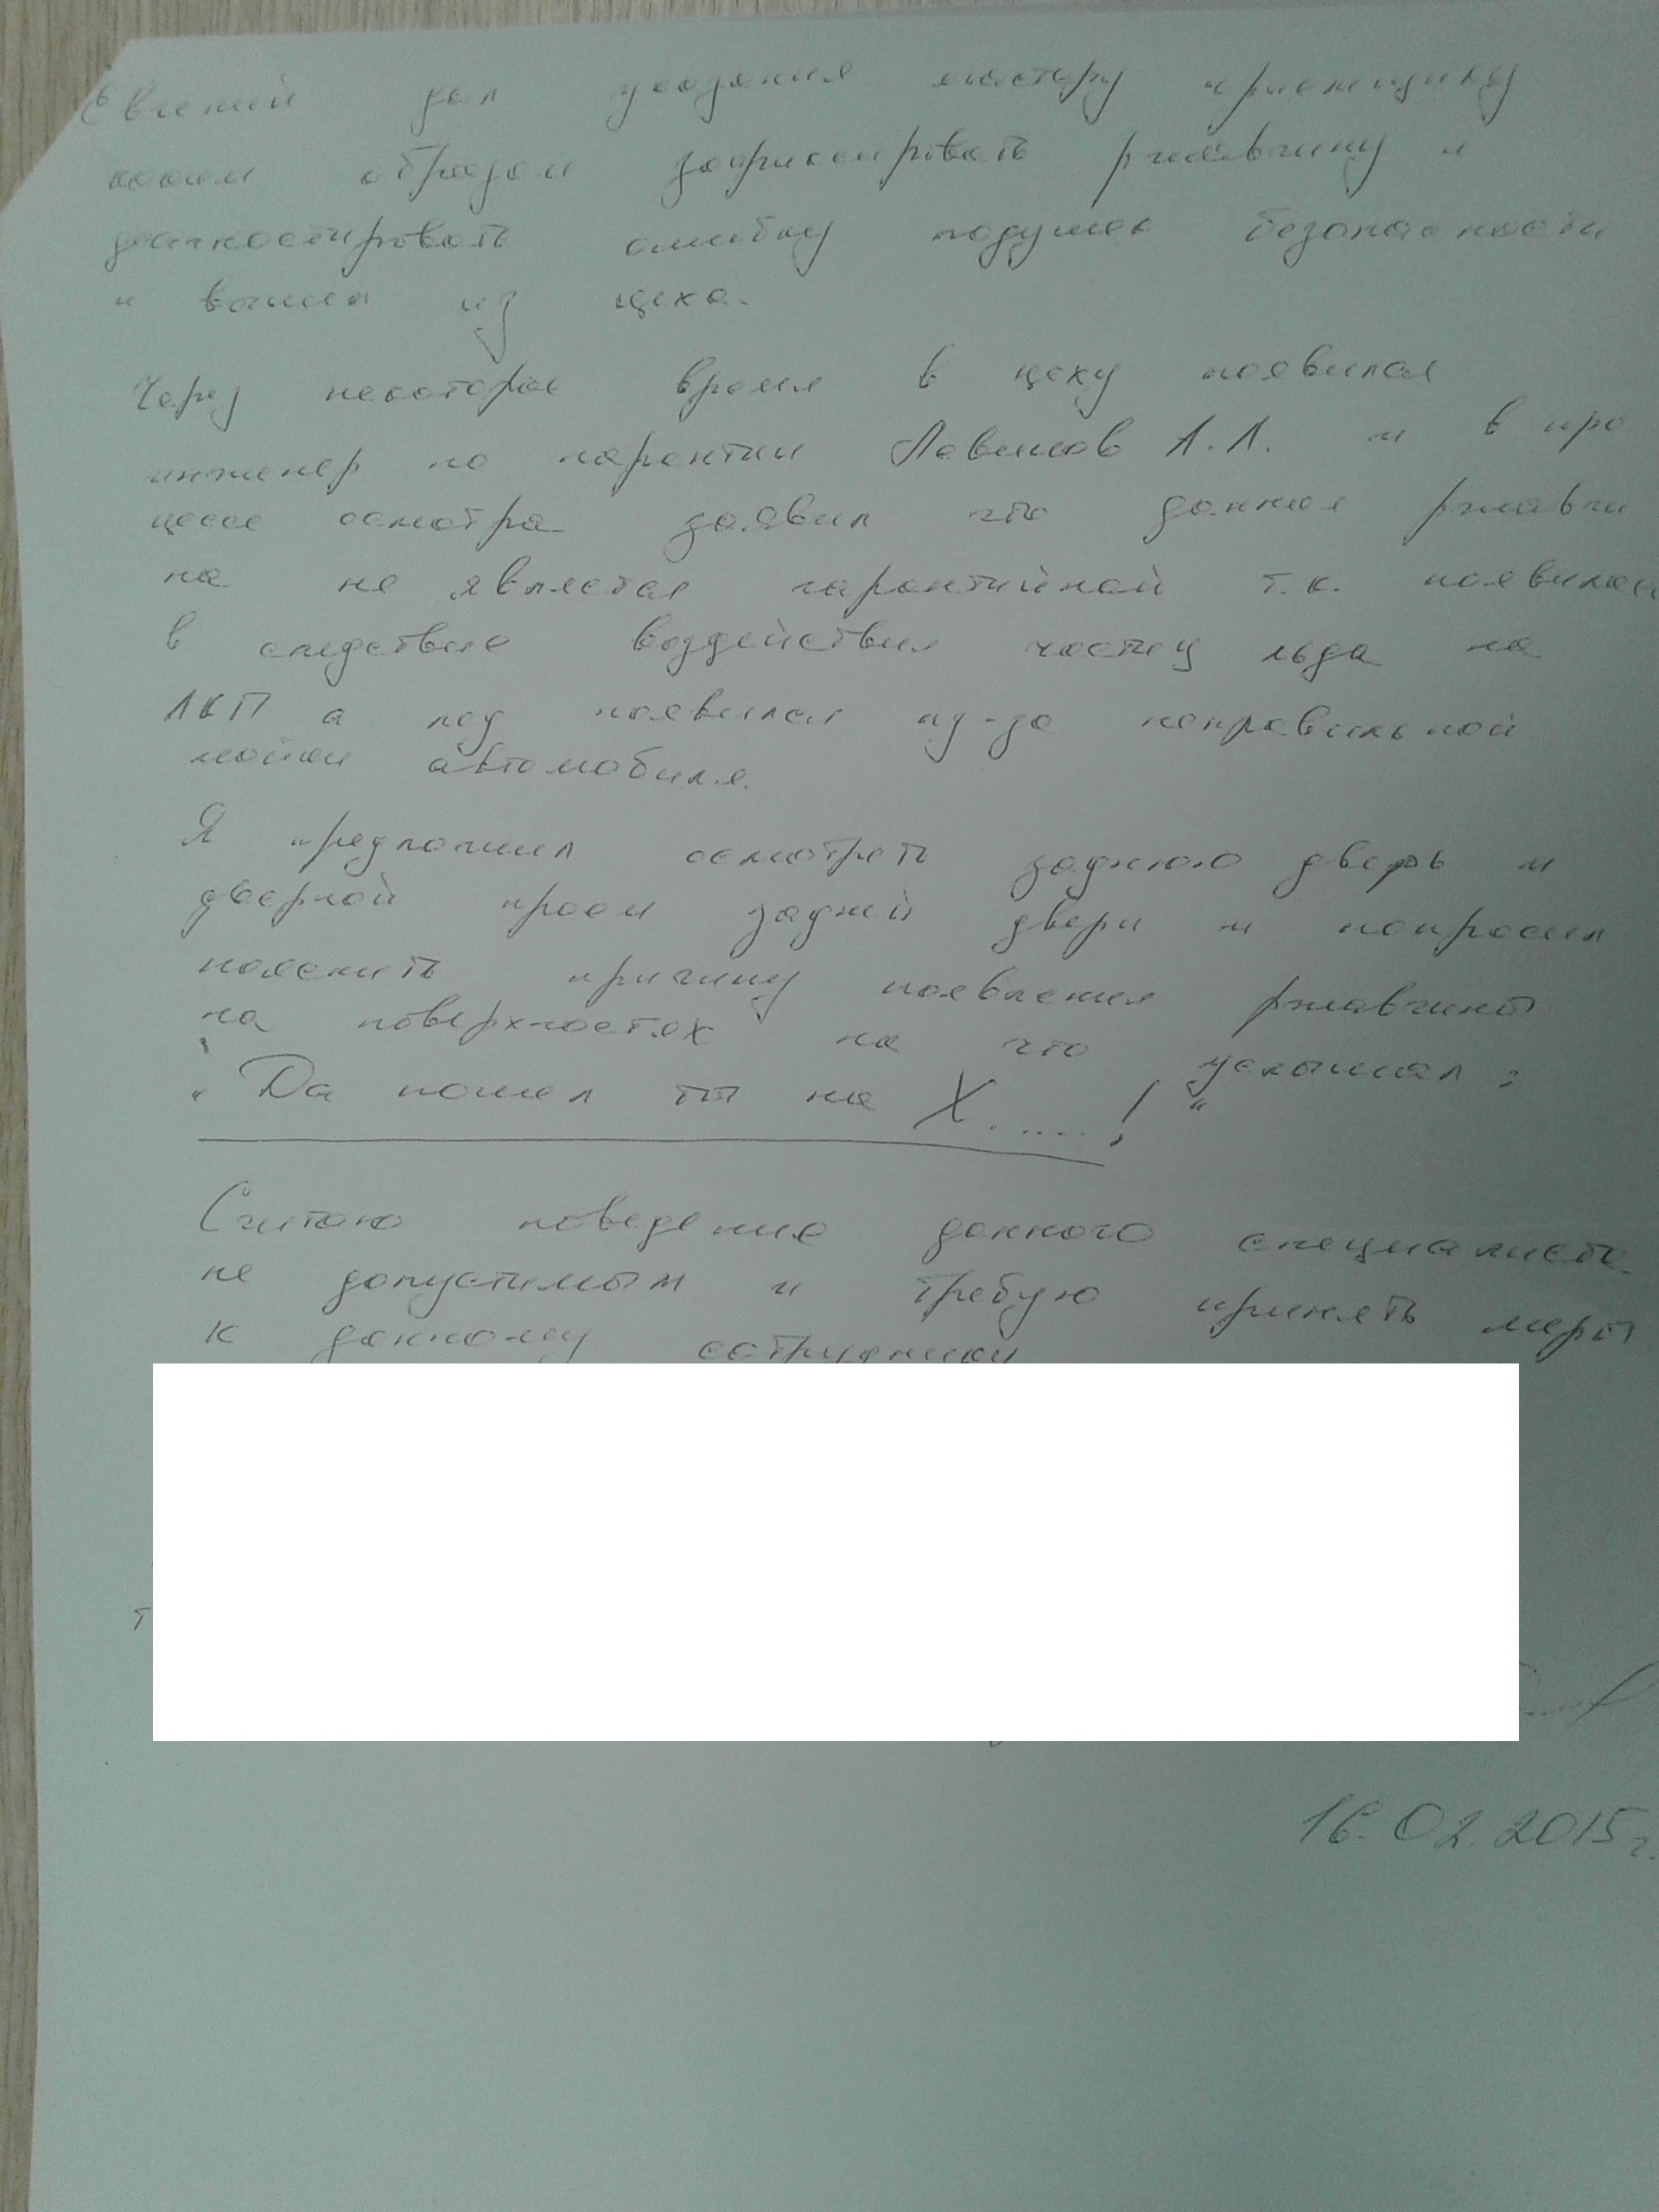 Евгений дал указания мастеру приемщику
каким образом зафиксировать ржавчину и
диагностировать ошибку подушек безопасности
и вышел из цеха.
Через некоторое время в цеху появился
инженер по гарантии А.Л. и в про
цессе осмотра заявил что данная ржавчи
на не является гарантийной т.к. появилась
в следствие воздействия частиц льда на
ЛКП а лед появился из-за неправильной
мойки автомобиля.
Я предложил осмотреть заднюю дверь и
дверной проем задней двери и попросил
пояснить причину появления ржавчины
на поверхностях на что услышал:
"Да пошел ты на Х.....!"
Считаю поведение данного специалиста
не допустимым и требую принять меры
к данному сотруднику
16.02.2015г.